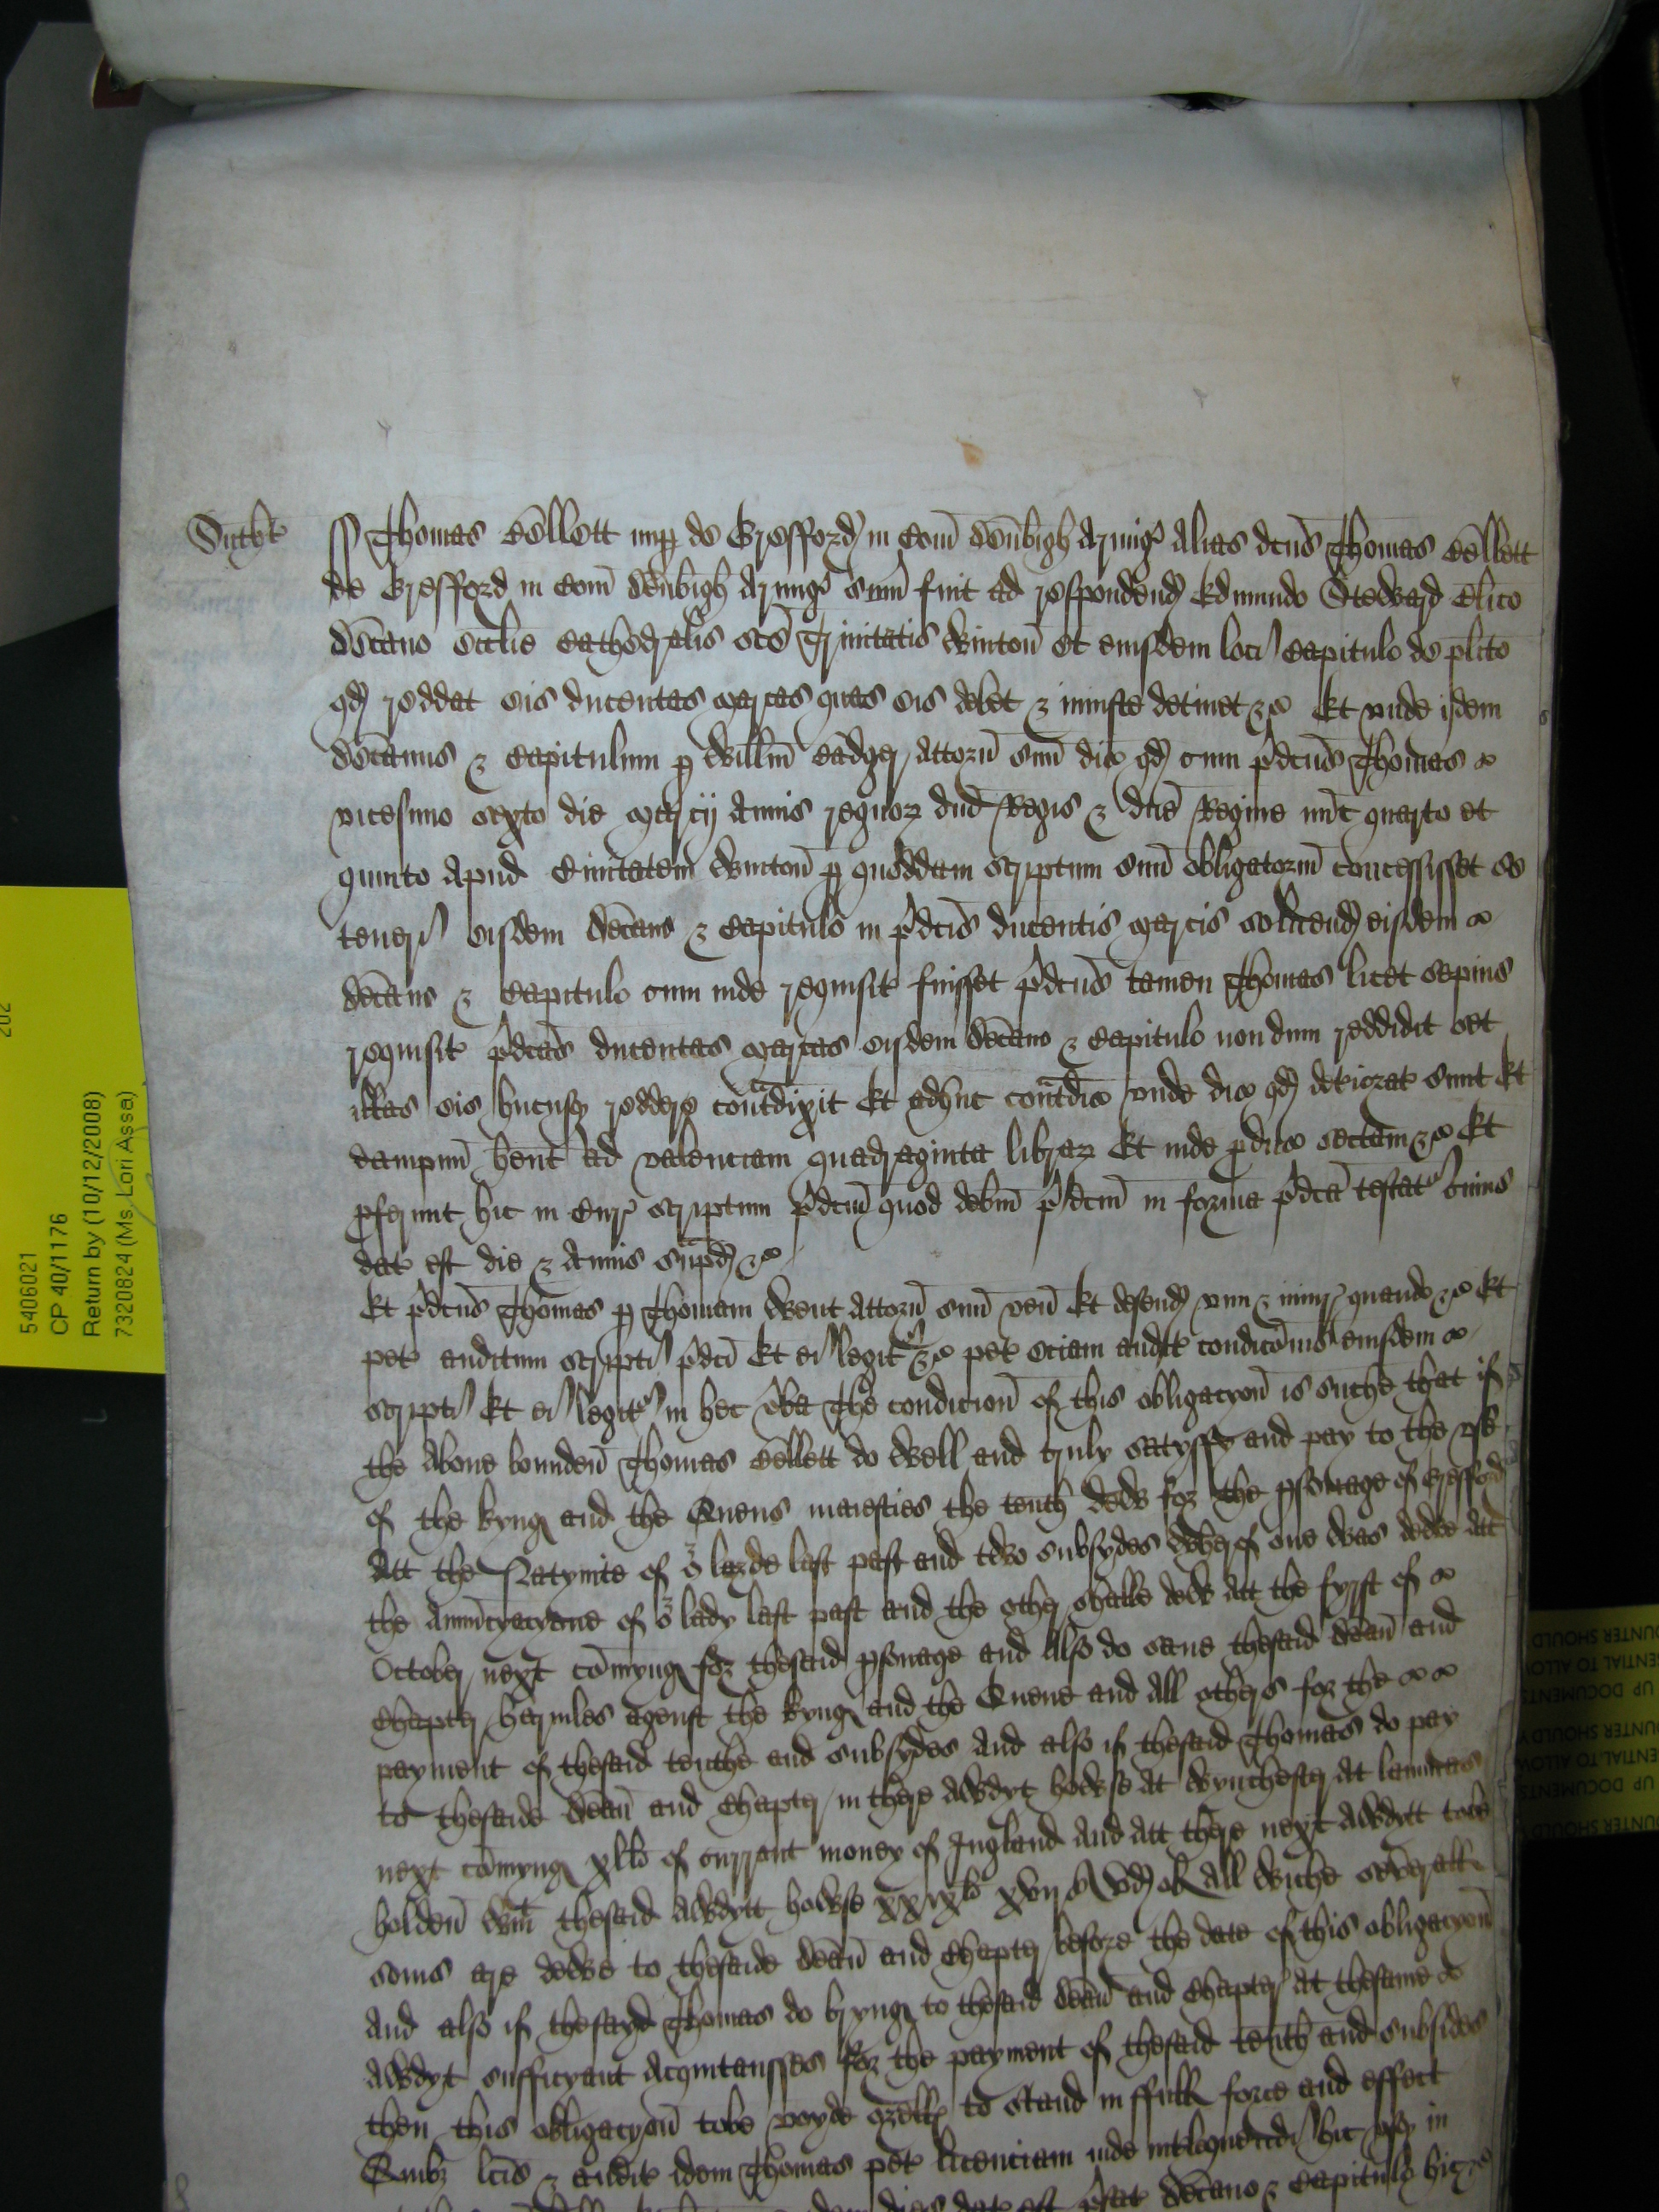 Sutht
Thomas Bellott nup de Gresford in Com Denbigh Armig alias dcus Thomas Bellott
de Gresford in Com Denbigh Armig sum fuit ad respondend Edmundo Steward Clico
Decano Ecclie Cathedralis sce Trinitatis Winton et eiusdem loci Capitulo de plito
qd reddat eis ducentas marcas quas eis debet & iniuste detinet &c Et unde ijdem
Decanus & Capitulum p Willm attorn suu dic qd cum pdcus Thomas
vicesimo sexto die Marcij Annis regnor dni Regis & dne Regine nuc quarto et
quinto apud Civitatem Winton p quoddam scriptum suu obligatoriu concessisset se
teneri eisdem Decano & Capitulo in pdcis ducentis marcis solvend eisdem
Decano & Capitulo cum inde requisit fuisset pdcus tamen Thomas licet sepius
requisit pdcas ducentas marcas eisdem Decano & Capitulo nondum reddidit set
illas eis hucusq reddere contradixit Et adhuc contradic unde dic qd deteriorat sunt Et
dampnu hent ad valenciam quadraginta librar Et inde produc sectam &c Et
pferunt hic in Cur scriptum pdcm quod debm pdcm in forma pdca testat cuius
dat est die & Annis supad &c
Et pdcus Thomas p Thomam Went attorn suu ven Et defend vim & iniur quando &c Et
pet auditum scripti pdci Et ei legit &c pet eciam audit condicois eiusdem
scripti Et ei legit in hec vba The condicion of this obligacyon is suche that if
the above bounden Thomas Bellott do well and truly satysfy and pay to the use
of the kyng and the Quens maiesties the tenth dew for the psonage of Gresford
att the Natyvite of or lorde last past and two subsydes wherof one was dewe att
the Annucyacyone of or lady last past and the other shalbe dew att the fyrst of
October next comyng for thesaid psonage and also do save thesaid dean and
Chapter harmles agenst the kyng and the Quene and all others for the
payment of thesaid tenthe and subsydes And also if thesaid Thomas do pay
to thesaide dean and Chapter in there Awdyt howse at Wynchester at lammas
next comyng xl lb of currant money of Ingland And att there next Awdytt tobe
holden wtin thesaid Awdytt howse xxix lb xvij s vd ob All wiche severall
soms are dewe to thesaide dean and Chapter before the date of this obligacyon
And also if thesayd Thomas do bryng to thesaid dean and Chapter at thesame
Awdyt sufficyant Acquitansses for the payment of thesaid tenth and subsides
then this obligacyon tobe voyde orells to stand in ffull force and effect
Quibz lcis & audit idem Thomas pet licenciam inde intloquendi hic usq in
idem dies dat est pfat Decano & Capitulo hic &c
5406021
CP 40/1176
Return by (10/12/2008)
7320824 (Ms. Lori Assa)
202